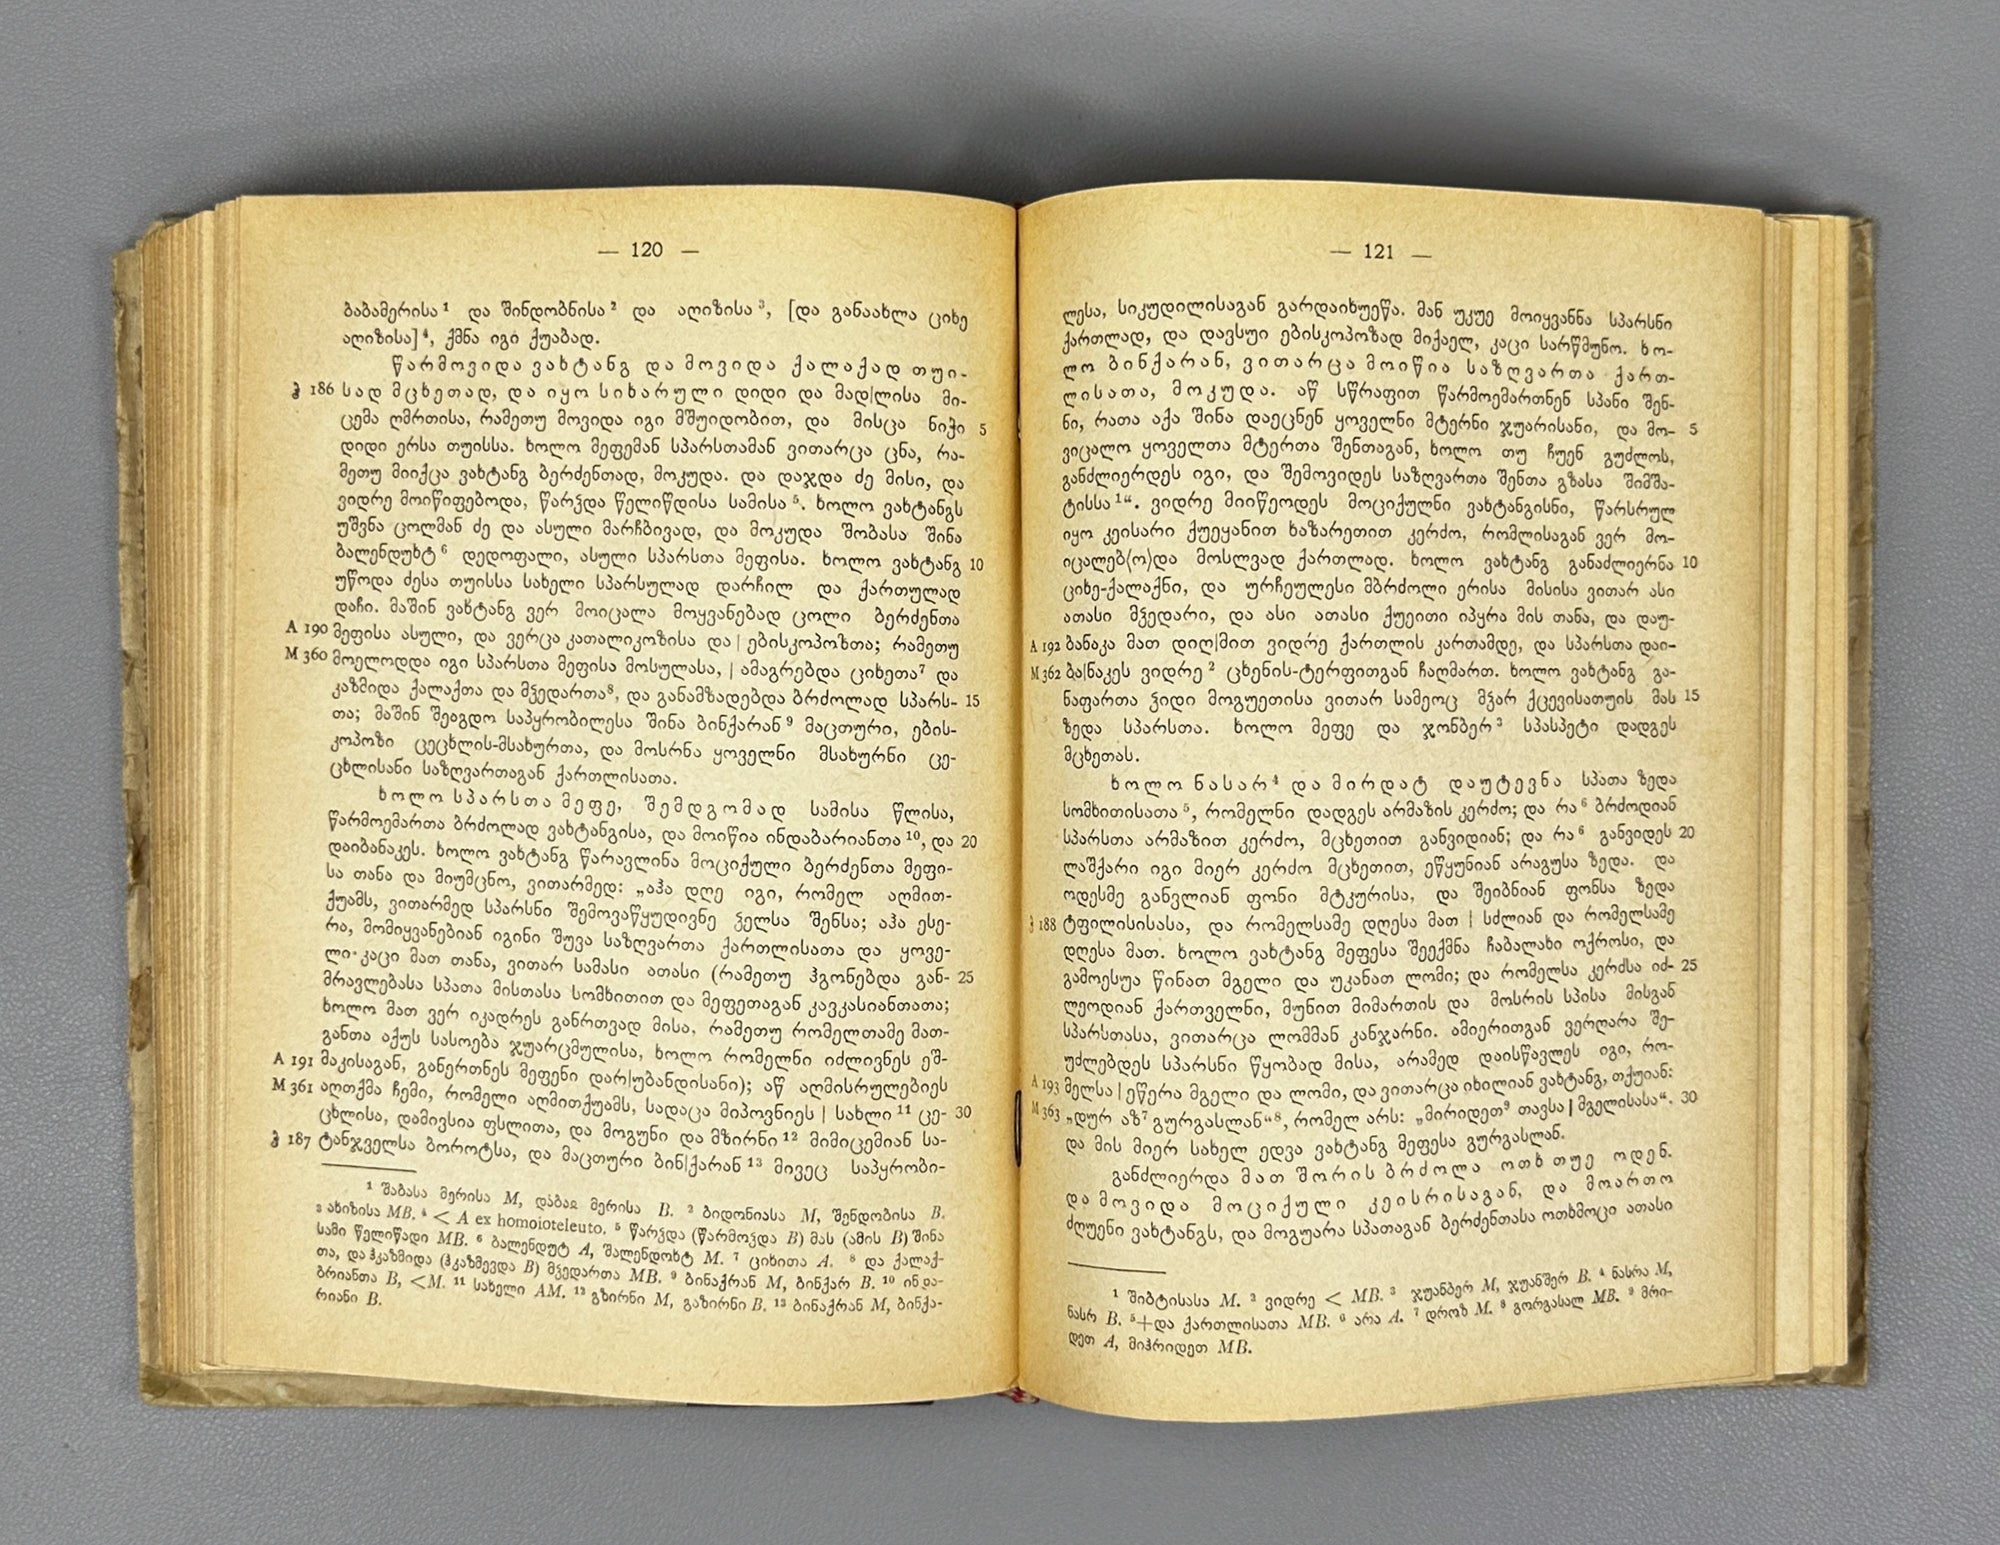 — 120 —
ბაბამერისა¹ და შინდობნისა² და აღიზისა³, [და განაახლა ციხე
აღიზისა]⁴, ქმნა იგი ქუაბად.
წარმოვიდა ვახტანგ და მოვიდა ქალაქად თუი-
ჭ 186 სად მცხეთად, და იყო სიხარული დიდი და მად|ლისა მი-
ცემა ღმრთისა, რამეთუ მოვიდა იგი მშუიდობით, და მისცა ნიჭი 5
დიდი ერსა თუისსა. ხოლო მეფემან სპარსთამან ვითარცა ცნა, რა-
მეთუ მიიქცა ვახტანგ ბერძენთად, მოკუდა. და დაჯდა ძე მისი, და
ვიდრე მოიწიფებოდა, წარჴდა წელიწდისა სამისა⁵. ხოლო ვახტანგს
უშვნა ცოლმან ძე და ასული მარჩბივად, და მოკუდა შობასა შინა
ბალენდუხტ⁶ დედოფალი, ასული სპარსთა მეფისა. ხოლო ვახტანგ 10
უწოდა ძესა თუისსა სახელი სპარსულად დარჩილ და ქართულად
დაჩი. მაშინ ვახტანგ ვერ მოიცალა მოყვანებად ცოლი ბერძენთა
A 190 მეფისა ასული, და ვერცა კათალიკოზისა და | ებისკოპოზთა; რამეთუ
M 360 მოელოდდა იგი სპარსთა მეფისა მოსულასა, | ამაგრებდა ციხეთა⁷ და
კაზმიდა ქალაქთა და მჴედართა⁸, და განამზადებდა ბრძოლად სპარს- 15
თა; მაშინ შეაგდო საპყრობილესა შინა ბინქარან⁹ მაცთური, ების-
კოპოზი ცეცხლის-მსახურთა, და მოსრნა ყოველნი მსახურნი ცე-
ცხლისანი საზღვართაგან ქართლისათა.
ხოლო სპარსთა მეფე, შემდგომად სამისა წლისა,
წარმოემართა ბრძოლად ვახტანგისა, და მოიწია ინდაბარიანთა¹⁰, და 20
დაიბანაკეს. ხოლო ვახტანგ წარავლინა მოციქული ბერძენთა მეფი-
სა თანა და მიუმცნო, ვითარმედ: „აჰა დღე იგი, რომელ აღმით-
ქუამს, ვითარმედ სპარსნი შემოვაწყუდივნე ჴელსა შენსა; აჰა ესე-
რა, მომიყვანებიან იგინი შუვა საზღვართა ქართლისათა და ყოვე-
ლი კაცი მათ თანა, ვითარ სამასი ათასი (რამეთუ ჰგონებდა გან- 25
მრავლებასა სპათა მისთასა სომხითით და მეფეთაგან კავკასიანთათა;
ხოლო მათ ვერ იკადრეს განრთვად მისა, რამეთუ რომელთამე მათ-
განთა აქუს სასოება ჯუარცმულისა, ხოლო რომელნი იძლივნეს ეშ-
A 191 მაკისაგან, განერთნეს მეფენი დარ|უბანდისანი); აწ აღმისრულებიეს
M 361 აღთქმა ჩემი, რომელი აღმითქუამს, სადაცა მიპოვნიეს | სახლი¹¹ ცე- 30
ცხლისა, დამივსია ფსლითა, და მოგუნი და მზირნი¹² მიმიცემიან სა-
ჭ 187 ტანჯველსა ბოროტსა, და მაცთური ბინ|ქარან¹³ მივეც საპყრობი-
¹ შაბასა მერისა M, დაბად მერისა B. ² ბიდონიასა M, შენდობისა B.
³ ახიზისა MB. ⁴ < A ex homoioteleuto. ⁵ წარჴდა (წარმოჴდა B) მას (ამის B) შინა
სამი წელიწადი MB. ⁶ ბალენდუტ A, შალენდოხტ M. ⁷ ციხითა A. ⁸ და ქალაქ-
თა, და ჰკაზმიდა (ჰკაზმევდა B) მჴედართა MB. ⁹ ბინაქრან M, ბინქარ B. ¹⁰ ინდა-
ბრიანთა B, <M. ¹¹ სახელი AM. ¹² გზირნი M, გაზირნი B. ¹³ ბინაქრან M, ბინქა-
რიანი B.
— 121 —
ლესა, სიკუდილისაგან გარდაიხუეწა. მან უკუე მოიყვანნა სპარსნი
ქართლად, და დავსუი ებისკოპოზად მიქაელ, კაცი სარწმუნო. ხო-
ლო ბინქარან, ვითარცა მოიწია საზღვართა ქართ-
ლისათა, მოკუდა. აწ სწრაფით წარმოემართნენ სპანი შენ-
ნი, რათა აქა შინა დაეცნენ ყოველნი მტერნი ჯუარისანი, და მო- 5
ვიცალო ყოველთა მტერთა შენთაგან, ხოლო თუ ჩუენ გუძლოს,
განძლიერდეს იგი, და შემოვიდეს საზღვართა შენთა გზასა შიმშა-
ტისსა¹“. ვიდრე მიიწეოდეს მოციქულნი ვახტანგისნი, წარსრულ
იყო კეისარი ქუეყანით ხაზარეთით კერძო, რომლისაგან ვერ მო-
იცალებ(ო)და მოსლვად ქართლად. ხოლო ვახტანგ განაძლიერნა 10
ციხე-ქალაქნი, და ურჩეულესი მბრძოლი ერისა მისისა ვითარ ასი
ათასი მჴედარი, და ასი ათასი ქუეითი იპყრა მის თანა, და დაუ-
A 192 ბანაკა მათ დიღ|მით ვიდრე ქართლის კართამდე, და სპარსთა დაი-
M 362 ბა|ნაკეს ვიდრე² ცხენის-ტერფითგან ჩაღმართ. ხოლო ვახტანგ გა-
ნაფართა ჴიდი მოგუეთისა ვითარ სამეოც მჴარ ქცევისათუის მას 15
ზედა სპარსთა. ხოლო მეფე და ჯონბერ³ სპასპეტი დადგეს
მცხეთას.
ხოლო ნასარ⁴ და მირდატ დაუტევნა სპათა ზედა
სომხითისათა⁵, რომელნი დადგეს არმაზის კერძო; და რა⁶ ბრძოდიან
სპარსთა არმაზით კერძო, მცხეთით განვიდიან; და რა⁶ განვიდეს 20
ლაშქარი იგი მიერ კერძო მცხეთით, ეწყუნიან არაგუსა ზედა. და
ოდესმე განვლიან ფონი მტკურისა, და შეიბნიან ფონსა ზედა
ჭ 188 ტფილისისასა, და რომელსამე დღესა მათ | სძლიან და რომელსამე
დღესა მათ. ხოლო ვახტანგ მეფესა შეექმნა ჩაბალახი ოქროსი, და
გამოესუა წინათ მგელი და უკანათ ლომი; და რომელსა კერძსა იძ- 25
ლეოდიან ქართველნი, მუნით მიმართის და მოსრის სპისა მისგან
სპარსთასა, ვითარცა ლომმან კანჯარნი. ამიერითგან ვერღარა შე-
უძლებდეს სპარსნი წყობად მისა, არამედ დაისწავლეს იგი, რო-
A 193 მელსა | ეწერა მგელი და ლომი, და ვითარცა იხილიან ვახტანგ, თქუიან:
M 363 „დურ აზ⁷ გურგასლან“⁸, რომელ არს: „მირიდეთ⁹ თავსა | მგელისასა“. 30
და მის მიერ სახელ ედვა ვახტანგ მეფესა გურგასლან.
განძლიერდა მათ შორის ბრძოლა ოთხ თუე ოდენ.
და მოვიდა მოციქული კეისრისაგან, და მოართო
ძღუენი ვახტანგს, და მოგუარა სპათაგან ბერძენთასა ოთხმოცი ათასი
¹ შიბტისასა M. ² ვიდრე < MB. ³ ჯუანბერ M, ჯუანშერ B. ⁴ ნასრა M,
ნასრ B. ⁵+და ქართლისათა MB. ⁶ არა A. ⁷ დროზ M. ⁸ გორგასალ MB. ⁹ მრი-
დეთ A, მიჰრიდეთ MB.